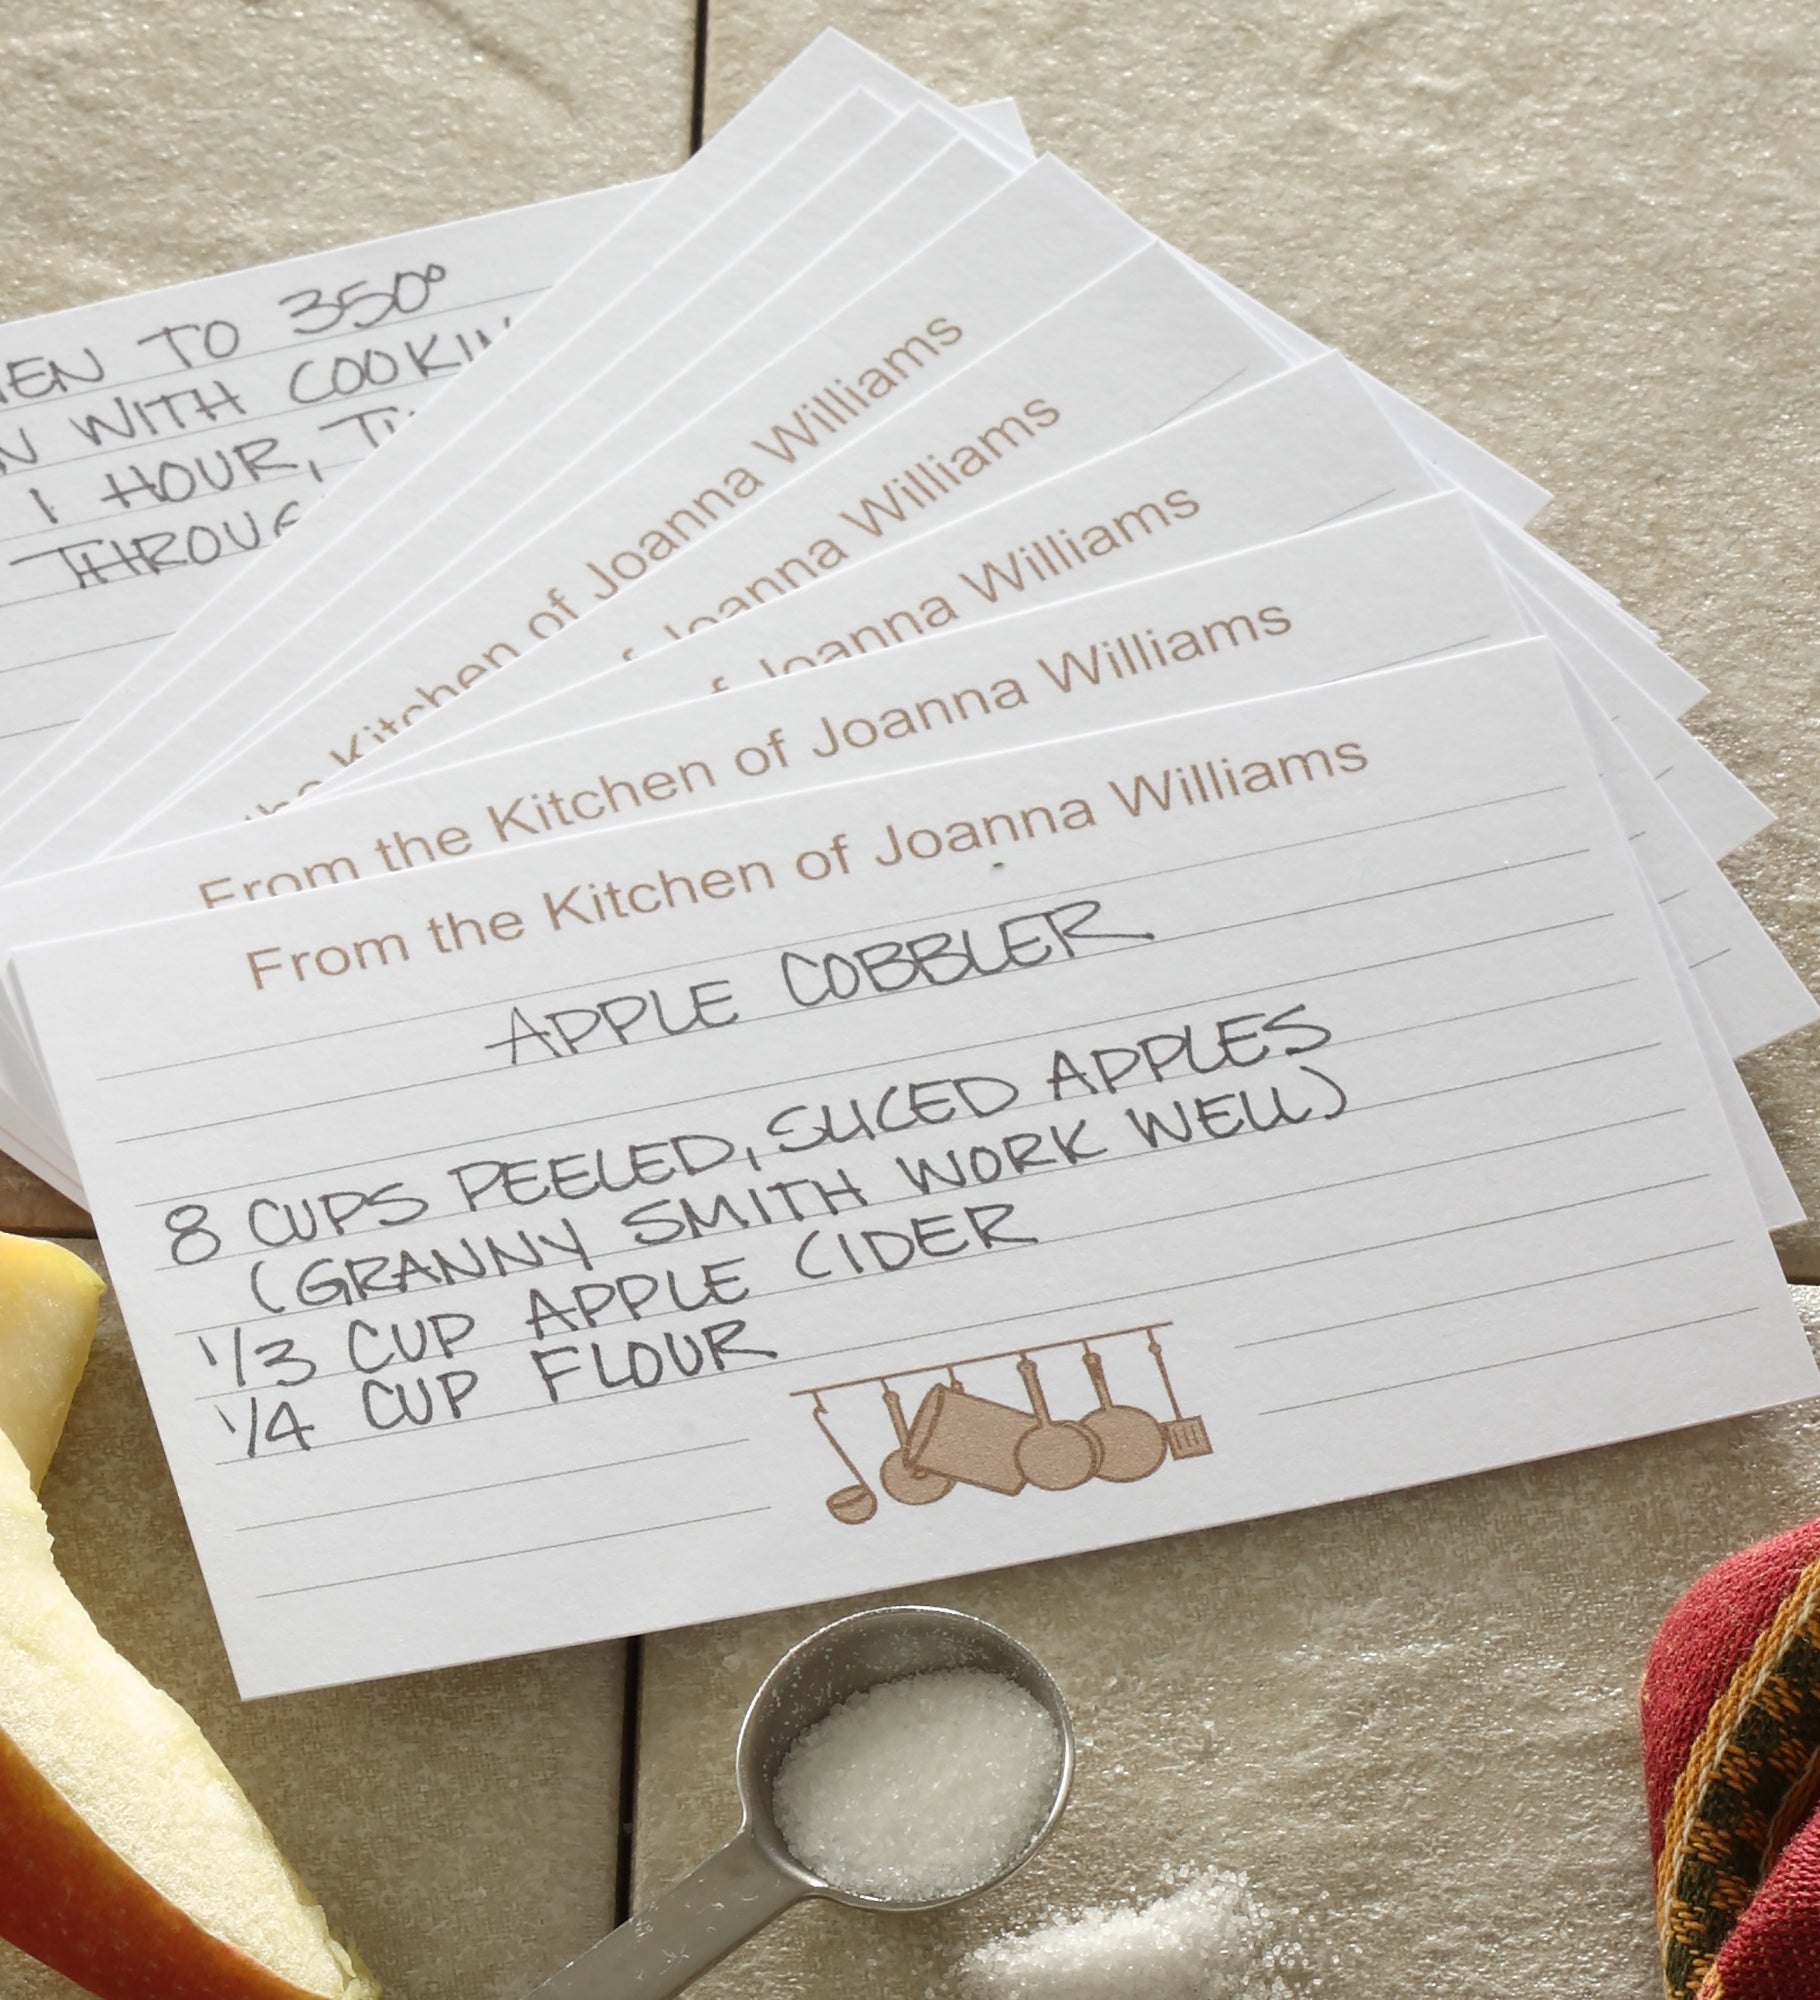 TO 350°
WITH
1 HOUR,
Kitchen of Joanna Williams
Joanna Williams
of Joanna Williams
From the Kitchen of Joanna Williams
From the Kitchen of Joanna Williams
APPLE COBBLER
8 CUPS PEELED, SLICED APPLES
(GRANNY SMITH WORK WELL)
1/3 CUP APPLE CIDER
1/4 CUP FLOUR